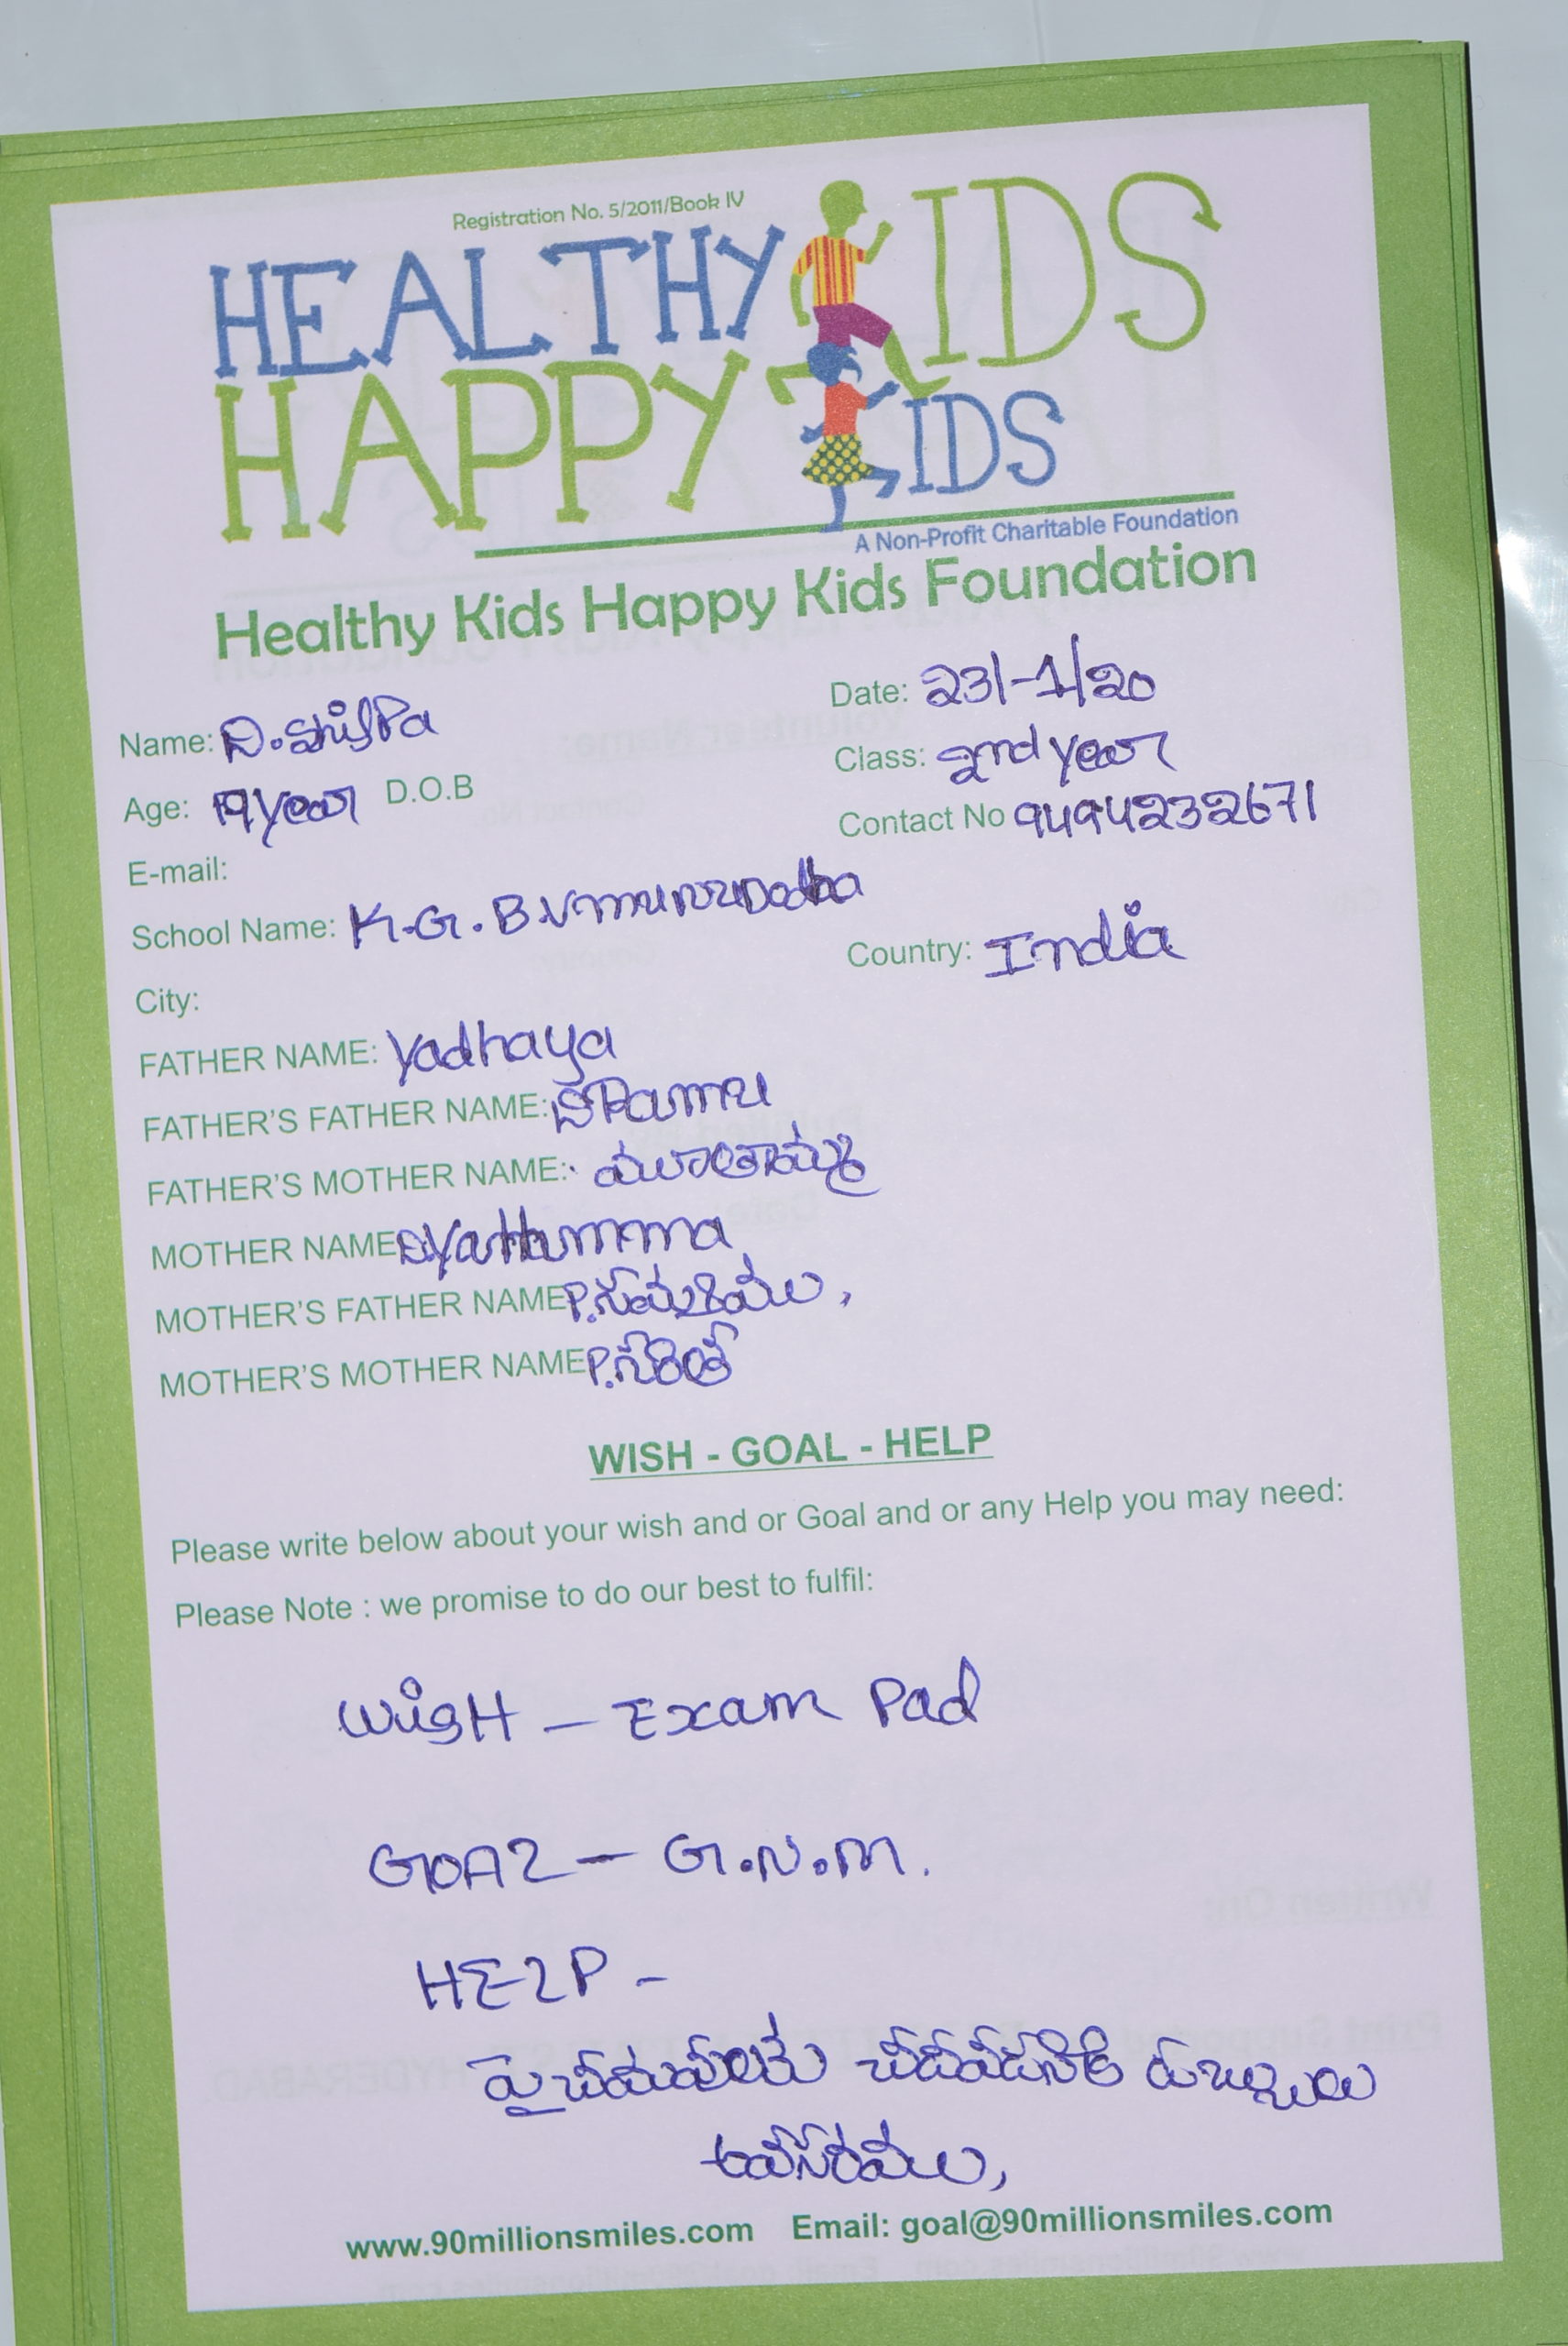 Registration No. 5/2011/Book IV
HEALTHY KIDS
HAPPY KIDS
A Non-Profit Charitable Foundation
Healthy Kids Happy Kids Foundation
Name: D.Shilpa Date: 23/-1/20
Age: 19 year D.O.B Class: 2nd year
Contact No 9494232671
E-mail:
School Name: K.G.B.V
Country: India
City:
FATHER NAME: Yadhaya
FATHER'S FATHER NAME: Ramu
FATHER'S MOTHER NAME:
MOTHER NAME
MOTHER'S FATHER NAME P.
MOTHER'S MOTHER NAME P.సరిత
WISH - GOAL - HELP
Please write below about your wish and or Goal and or any Help you may need:
Please Note : we promise to do our best to fulfil:
WisH - Exam Pad
GOAL - G.N.M.
HELP -
పై చదువులకు చదవడనికి డబ్బులు
అవసరము,
www.90millionsmiles.com Email: goal@90millionsmiles.com